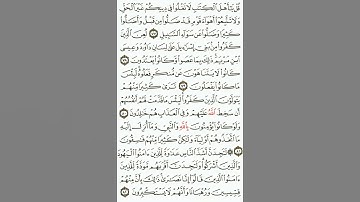 قُلْ يَٰٓأَهْلَ ٱلْكِتَٰبِ لَا تَغْلُوا۟ فِى دِينِكُمْ غَيْرَ ٱلْحَقِّ
وَلَا تَتَّبِعُوٓا۟ أَهْوَآءَ قَوْمٍ قَدْ ضَلُّوا۟ مِن قَبْلُ وَأَضَلُّوا۟
كَثِيرًا وَضَلُّوا۟ عَن سَوَآءِ ٱلسَّبِيلِ لُعِنَ ٱلَّذِينَ
كَفَرُوا۟ مِنۢ بَنِىٓ إِسْرَٰٓءِيلَ عَلَىٰ لِسَانِ دَاوُۥدَ وَعِيسَى
ٱبْنِ مَرْيَمَ ذَٰلِكَ بِمَا عَصَوا۟ وَّكَانُوا۟ يَعْتَدُونَ
كَانُوا۟ لَا يَتَنَاهَوْنَ عَن مُّنكَرٍ فَعَلُوهُ لَبِئْسَ
مَا كَانُوا۟ يَفْعَلُونَ تَرَىٰ كَثِيرًا مِّنْهُمْ
يَتَوَلَّوْنَ ٱلَّذِينَ كَفَرُوا۟ لَبِئْسَ مَا قَدَّمَتْ لَهُمْ أَنفُسُهُمْ
أَن سَخِطَ ٱللَّهُ عَلَيْهِمْ وَفِى ٱلْعَذَابِ هُمْ خَٰلِدُونَ
وَلَوْ كَانُوا۟ يُؤْمِنُونَ بِٱللَّهِ وَٱلنَّبِىِّ وَمَآ أُنزِلَ إِلَيْهِ
مَا ٱتَّخَذُوهُمْ أَوْلِيَآءَ وَلَٰكِنَّ كَثِيرًا مِّنْهُمْ فَٰسِقُونَ
لَتَجِدَنَّ أَشَدَّ ٱلنَّاسِ عَدَٰوَةً لِّلَّذِينَ ءَامَنُوا۟ ٱلْيَهُودَ
وَٱلَّذِينَ أَشْرَكُوا۟ وَلَتَجِدَنَّ أَقْرَبَهُم مَّوَدَّةً لِّلَّذِينَ
ءَامَنُوا۟ ٱلَّذِينَ قَالُوٓا۟ إِنَّا نَصَٰرَىٰ ذَٰلِكَ بِأَنَّ مِنْهُمْ
قِسِّيسِينَ وَرُهْبَانًا وَأَنَّهُمْ لَا يَسْتَكْبِرُونَ